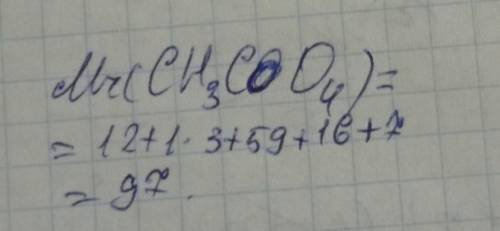 Mr(CH₃COO₄)=
= 12+1·3+59+16+7
= 97.